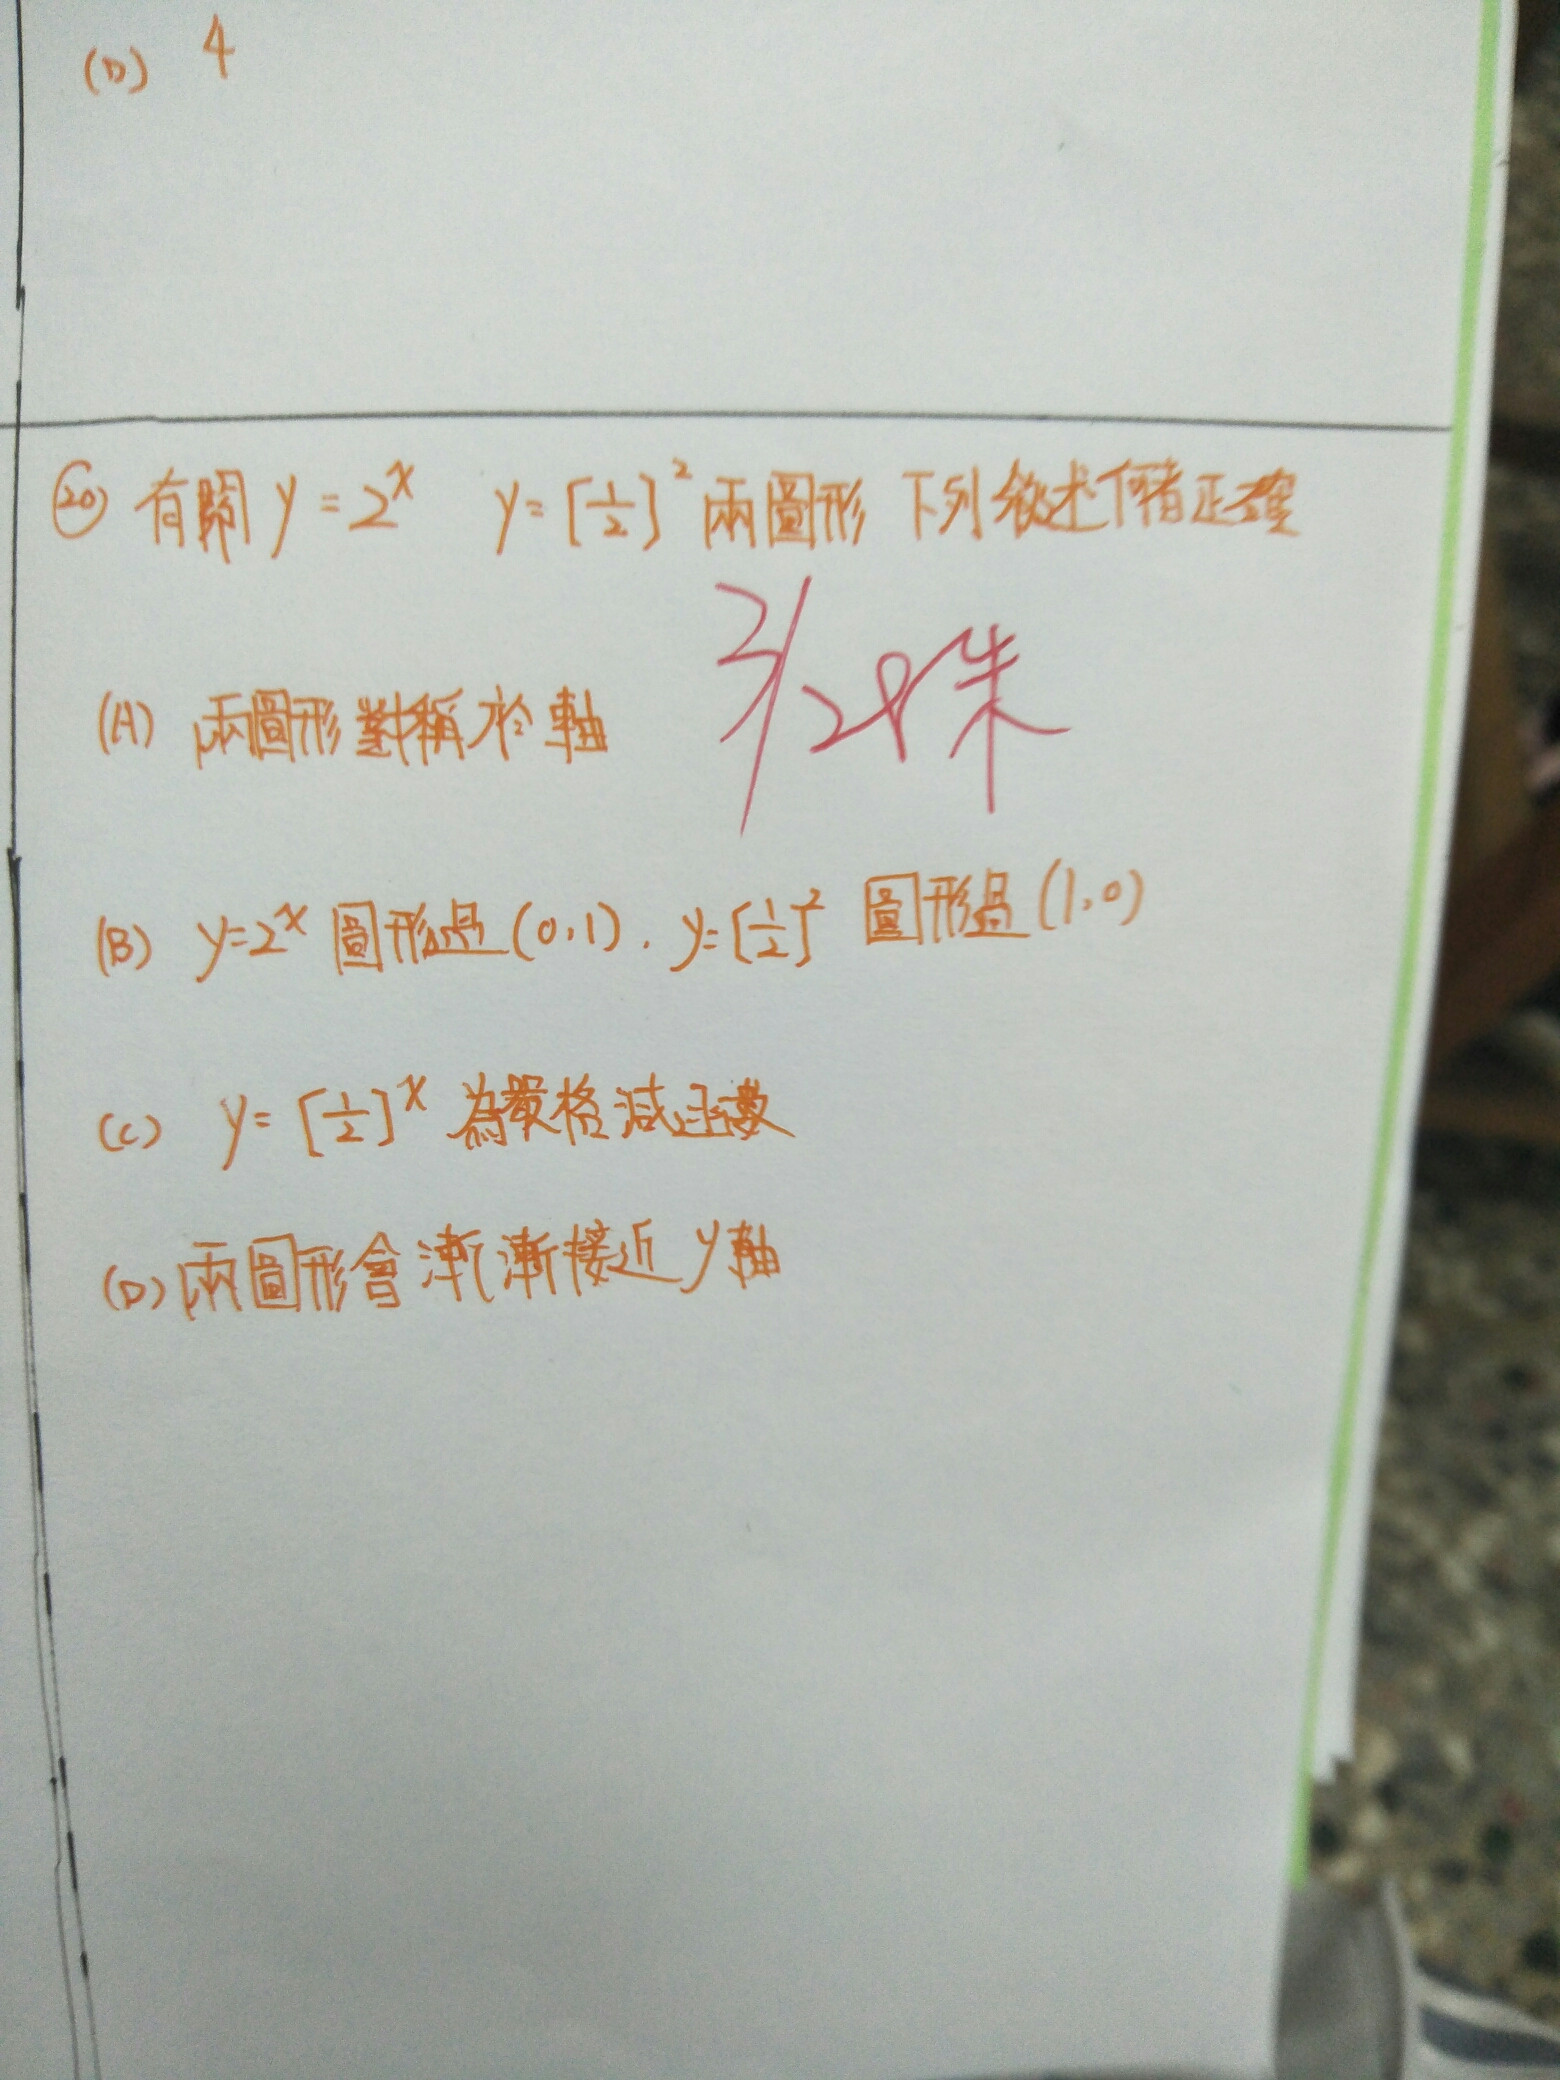 (D) 4
⑳ 有關 y=2^x y=[1/2]^2 兩圖形 下列敘述何者正確
2/28 朱
(A) 兩圖形對稱於軸
(B) y=2^x 圖形過(0,1). y=[1/2]^2 圖形過(1,0)
(C) y=[1/2]^x 為嚴格減函數
(D) 兩圖形會漸漸接近 y軸